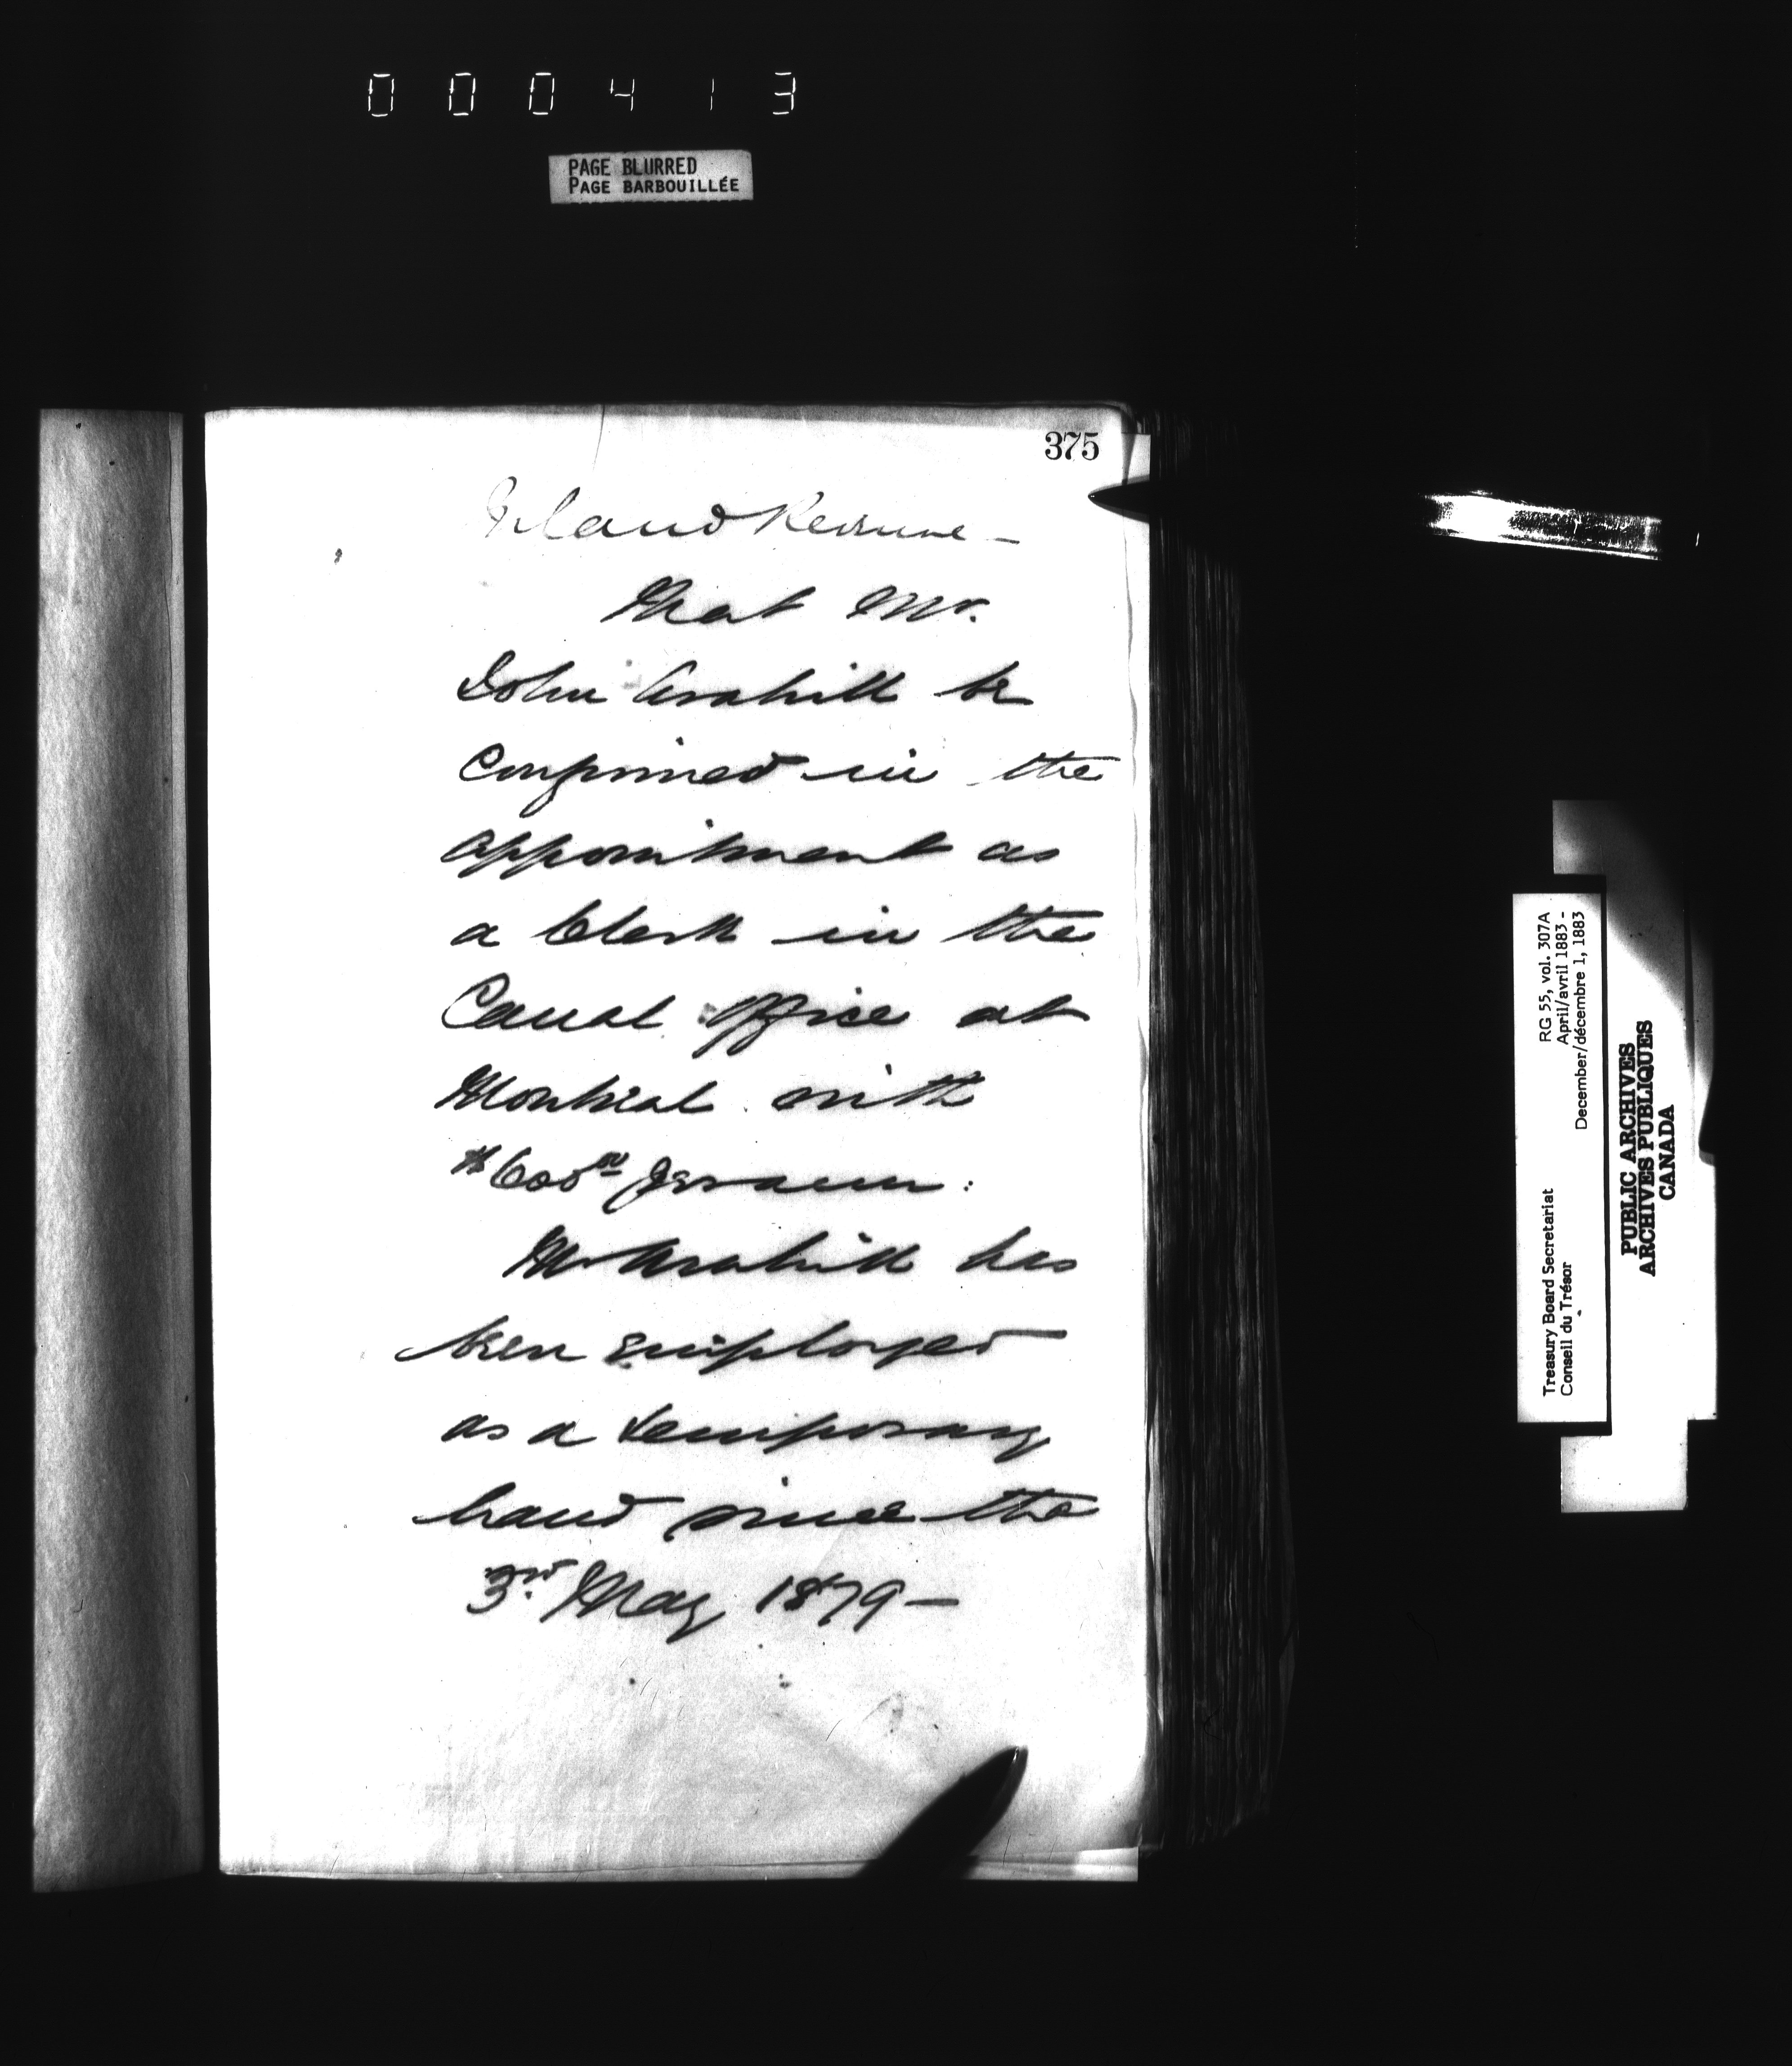 000413
PAGE BLURRED
PAGE BARBOUILLÉE
375
Inland Revenue –
That Mr.
John Cahill be
Confirmed in the
appointment as
a Clerk in the
Canal Office at
Montreal with
$600 00
Mr Cahill has
been employed
as a temporary
hand since the
3rd May 1879 –
RG 55, vol. 307A
April/avril 1883 -
December/décembre 1, 1883
Treasury Board Secretariat
Conseil du Trésor
PUBLIC ARCHIVES
ARCHIVES PUBLIQUES
CANADA